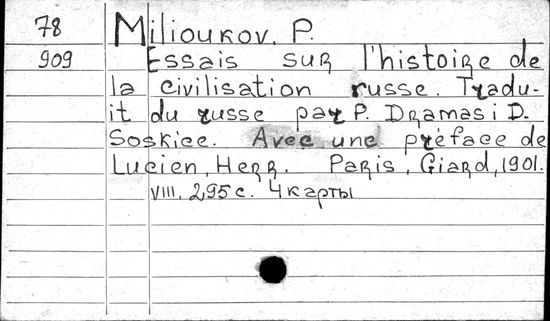 78
909
Milioukov. P.
Essais sur l'histoire de
la civilisation russe. Tradu-
it du russe par P. Dramas i D.
Soskice. Avec une préface de
Lucien, Herr. Paris, Giard, 1901.
VIII, 295 c. 4 карты